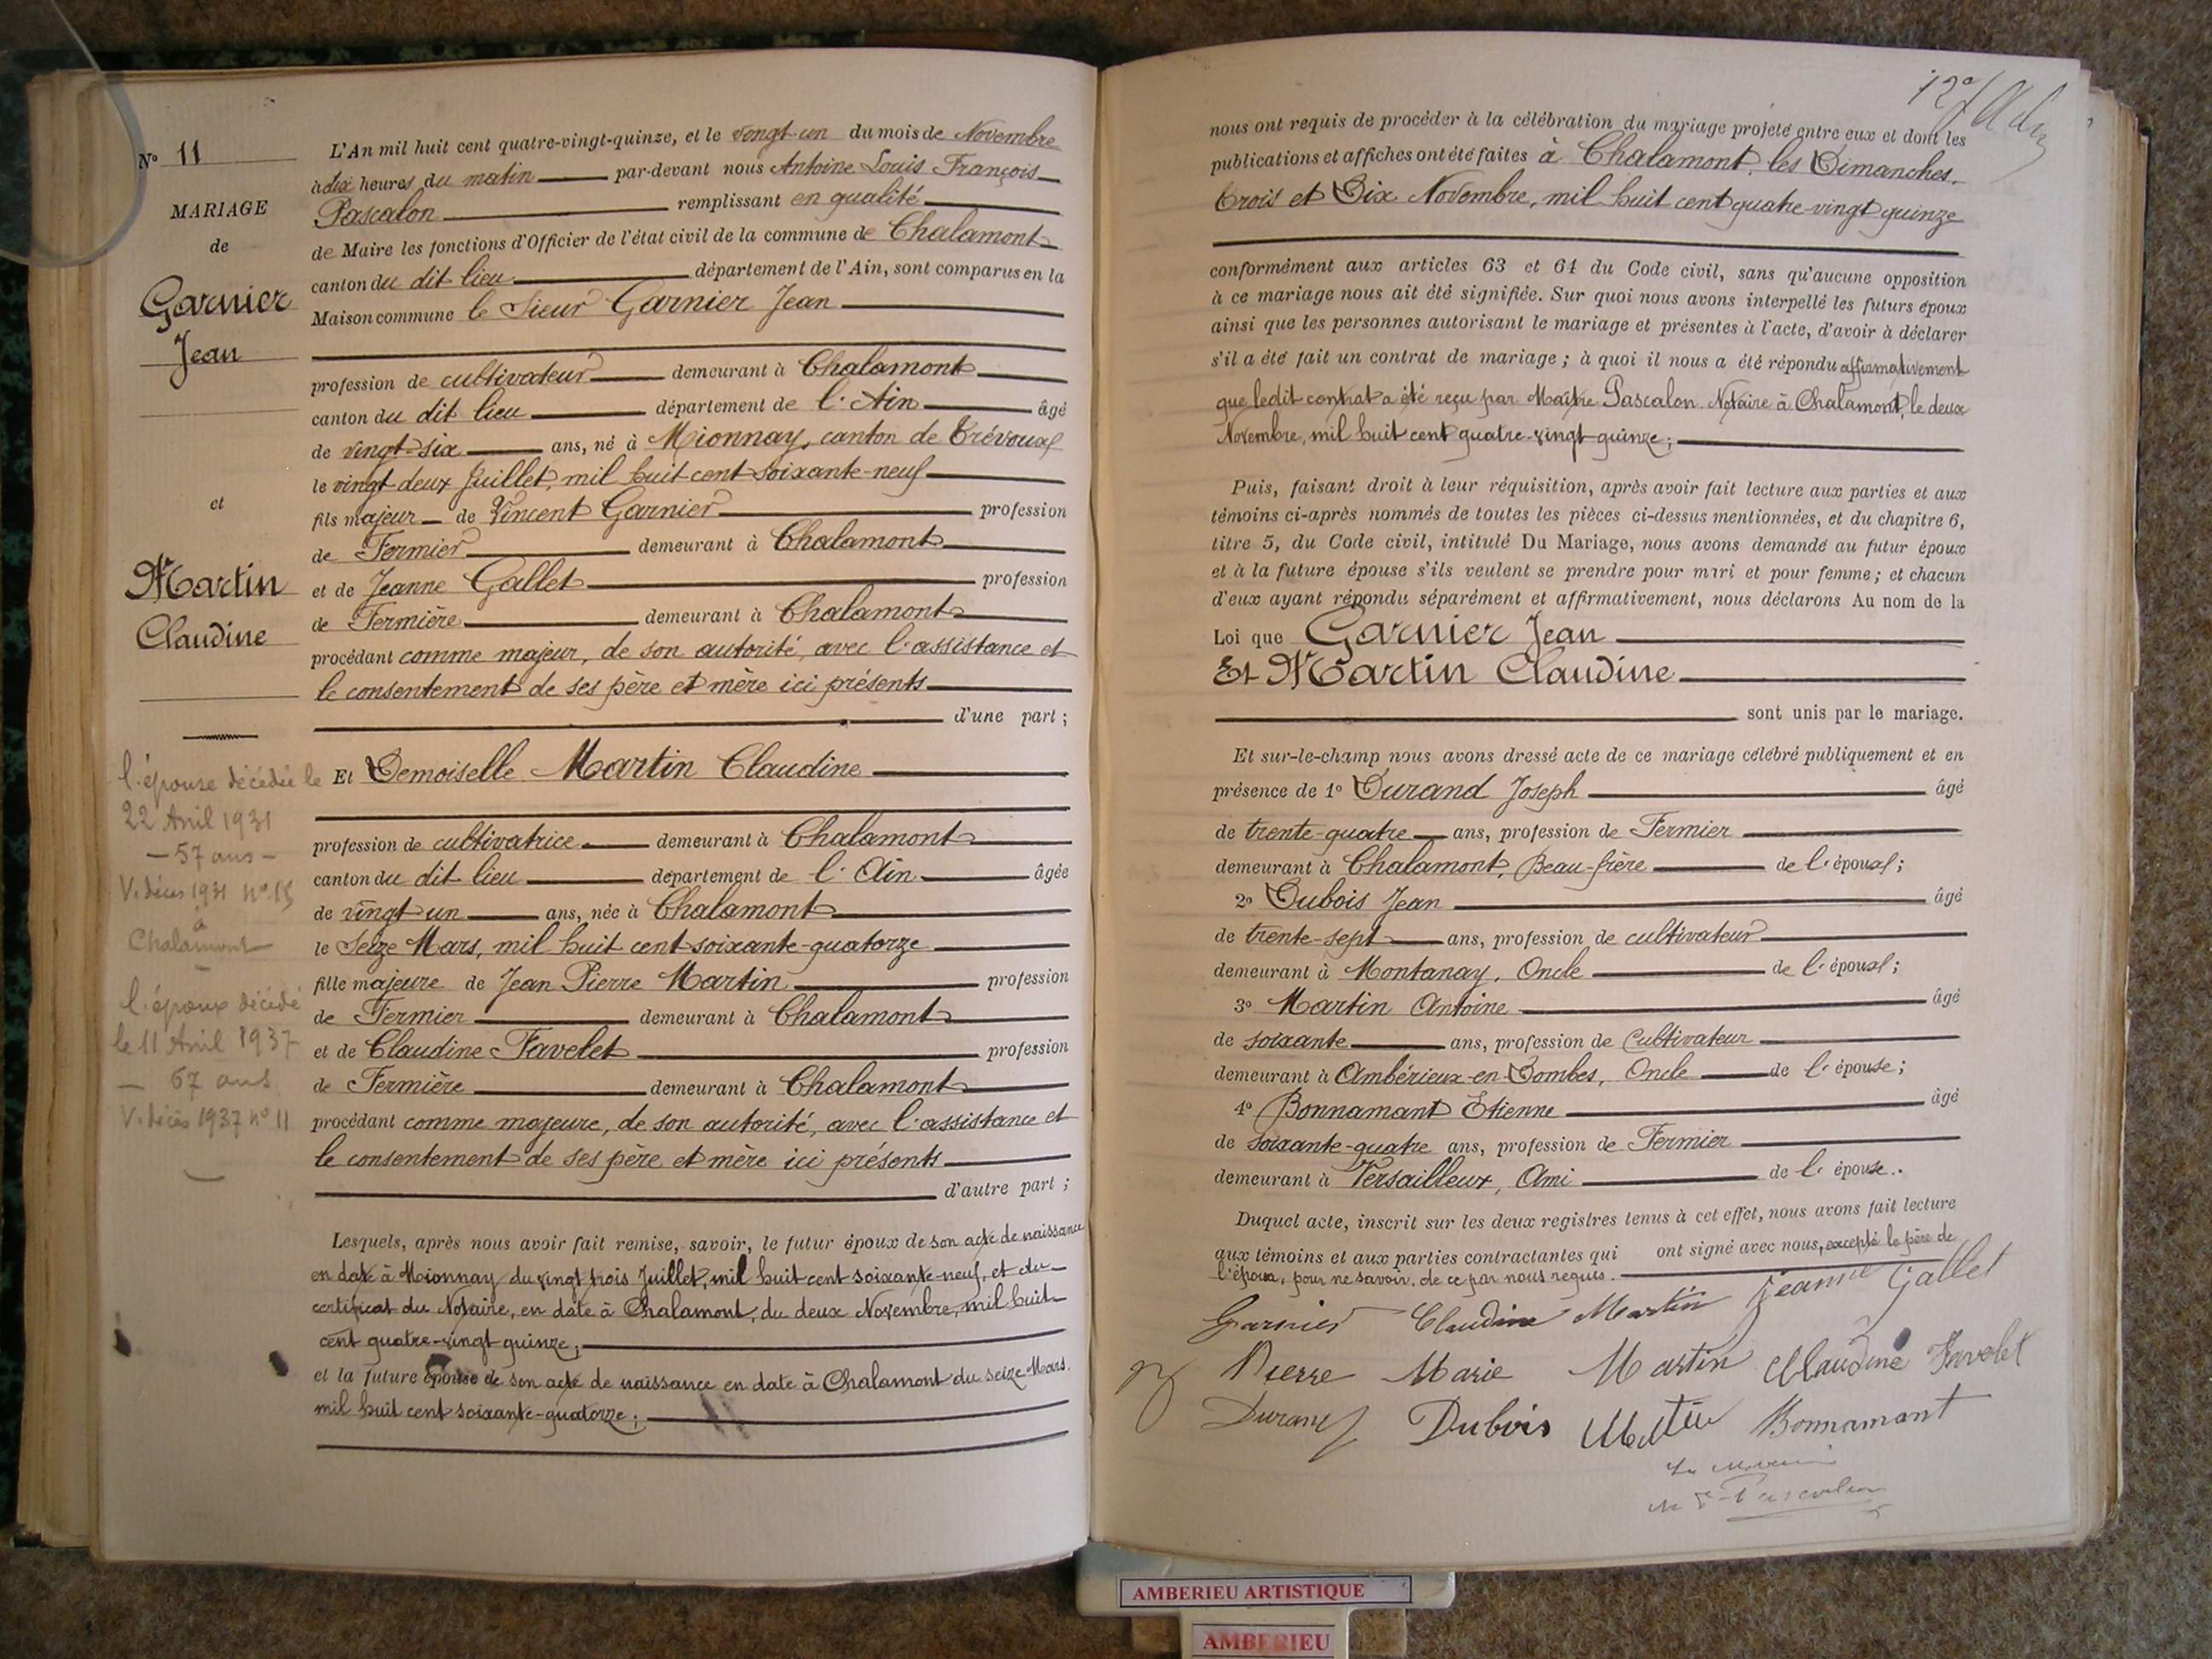 N° 11
MARIAGE
de
Garnier
Jean
et
Martin
Claudine
l'épouse décédée le
22 Avril 1931
- 57 ans -
V. décès 1931 n° 15
à
Chalamont
l'époux décédé
le 11 Avril 1937
- 67 ans
V. décès 1937 n° 11
L'An mil huit cent quatre-vingt-quinze, et le vingt-un du mois de Novembre
à dix heures du matin par-devant nous Antoine Louis François
Pascalon remplissant en qualité
de Maire les fonctions d'Officier de l'état civil de la commune de Chalamont
canton du dit lieu département de l'Ain, sont comparus en la
Maison commune le Sieur Garnier Jean
profession de cultivateur demeurant à Chalamont
canton du dit lieu département de l'Ain âgé
de vingt-six ans, né à Mionnay, canton de Trévoux
le vingt deux Juillet, mil huit cent soixante-neuf
fils majeur de Vincent Garnier profession
de Fermier demeurant à Chalamont
et de Jeanne Gallet profession
de Fermière demeurant à Chalamont
procédant comme majeur, de son autorité, avec l'assistance et
le consentement de ses père et mère ici présents
d'une part ;
Et Demoiselle Martin Claudine
profession de cultivatrice demeurant à Chalamont
canton du dit lieu département de l'Ain âgée
de vingt un ans, née à Chalamont
le Seize Mars, mil huit cent soixante-quatorze
fille majeure de Jean Pierre Martin profession
de Fermier demeurant à Chalamont
et de Claudine Favelet profession
de Fermière demeurant à Chalamont
procédant comme majeure, de son autorité, avec l'assistance et
le consentement de ses père et mère ici présents
d'autre part ;
Lesquels, après nous avoir fait remise, savoir, le futur époux de son acte de naissance
en date à Mionnay du vingt trois Juillet, mil huit cent soixante-neuf, et du
certificat du Notaire, en date à Chalamont, du deux Novembre, mil huit
cent quatre-vingt quinze ;
et la future épouse de son acte de naissance en date à Chalamont du seize Mars
mil huit cent soixante-quatorze ;
nous ont requis de procéder à la célébration du mariage projeté entre eux et dont les
publications et affiches ont été faites à Chalamont, les Dimanches
trois et Dix Novembre, mil huit cent quatre-vingt quinze
conformément aux articles 63 et 64 du Code civil, sans qu'aucune opposition
à ce mariage nous ait été signifiée. Sur quoi nous avons interpellé les futurs époux
ainsi que les personnes autorisant le mariage et présentes à l'acte, d'avoir à déclarer
s'il a été fait un contrat de mariage ; à quoi il nous a été répondu affirmativement
que ledit contrat a été reçu par Maître Pascalon Notaire à Chalamont, le deux
Novembre, mil huit cent quatre-vingt-quinze ;
Puis, faisant droit à leur réquisition, après avoir fait lecture aux parties et aux
témoins ci-après nommés de toutes les pièces ci-dessus mentionnées, et du chapitre 6,
titre 5, du Code civil, intitulé Du Mariage, nous avons demandé au futur époux
et à la future épouse s'ils veulent se prendre pour mari et pour femme ; et chacun
d'eux ayant répondu séparément et affirmativement, nous déclarons Au nom de la
Loi que Garnier Jean
Et Martin Claudine
sont unis par le mariage.
Et sur-le-champ nous avons dressé acte de ce mariage célébré publiquement et en
présence de 1° Durand Joseph âgé
de trente-quatre ans, profession de Fermier
demeurant à Chalamont, Beau-frère de l'époux ;
2° Dubois Jean âgé
de trente-sept ans, profession de cultivateur
demeurant à Montanay, Oncle de l'époux ;
3° Martin Antoine âgé
de soixante ans, profession de Cultivateur
demeurant à Ambérieux-en-Dombes, Oncle de l'épouse ;
4° Bonnamant Etienne âgé
de soixante-quatre ans, profession de Fermier
demeurant à Versailleux, Ami de l'épouse.
Duquel acte, inscrit sur les deux registres tenus à cet effet, nous avons fait lecture
aux témoins et aux parties contractantes qui ont signé avec nous, excepté le père de
l'époux, pour ne savoir, de ce par nous requis.
Garnier Claudine Martin Jeanne Gallet
Pierre Marie Martin Claudine Favelet
Durand Dubois Martin Bonnamant
Le Maire
Pascalon
AMBERIEU ARTISTIQUE
AMBERIEU